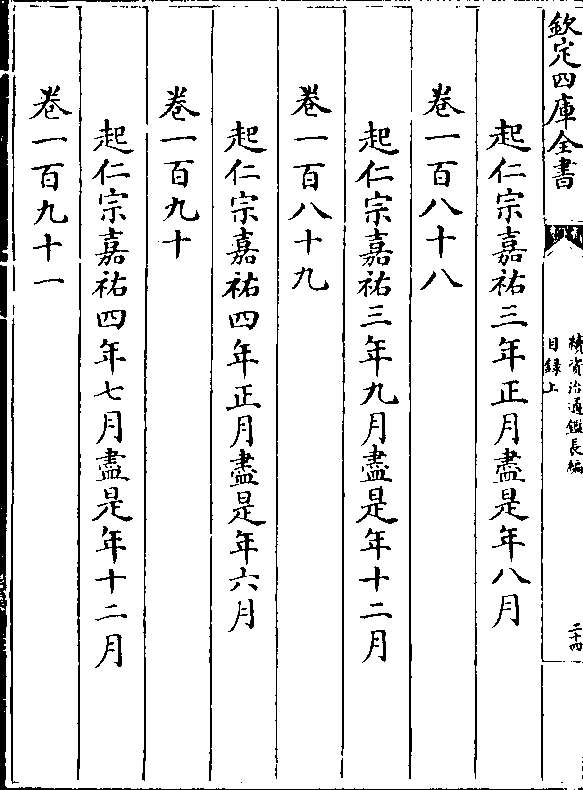 欽定四庫全書
續資治通鑑長編
目録上
二十四
起仁宗嘉祐三年正月盡是年八月
卷一百八十八
起仁宗嘉祐三年九月盡是年十二月
卷一百八十九
起仁宗嘉祐四年正月盡是年六月
卷一百九十
起仁宗嘉祐四年七月盡是年十二月
卷一百九十一